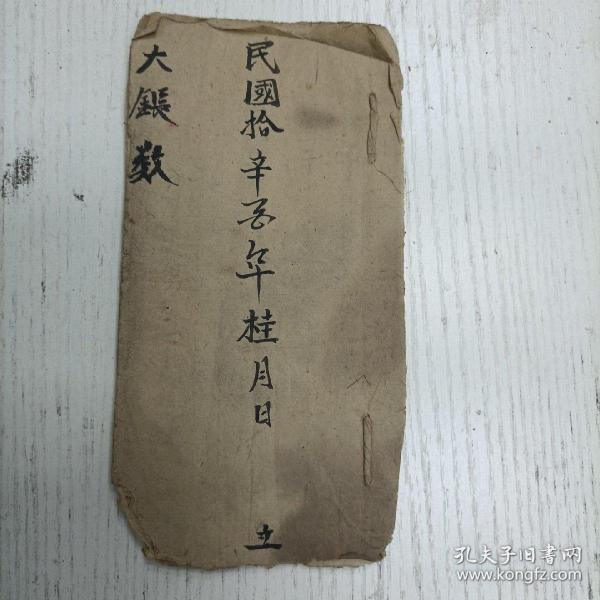 民國拾辛酉年桂月日 立
大賬数
孔夫子旧书网
www.kongfz.com